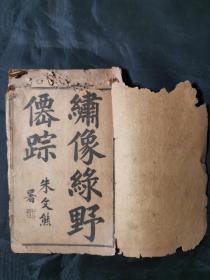 繡像綠野
僊踪
朱文熊
署